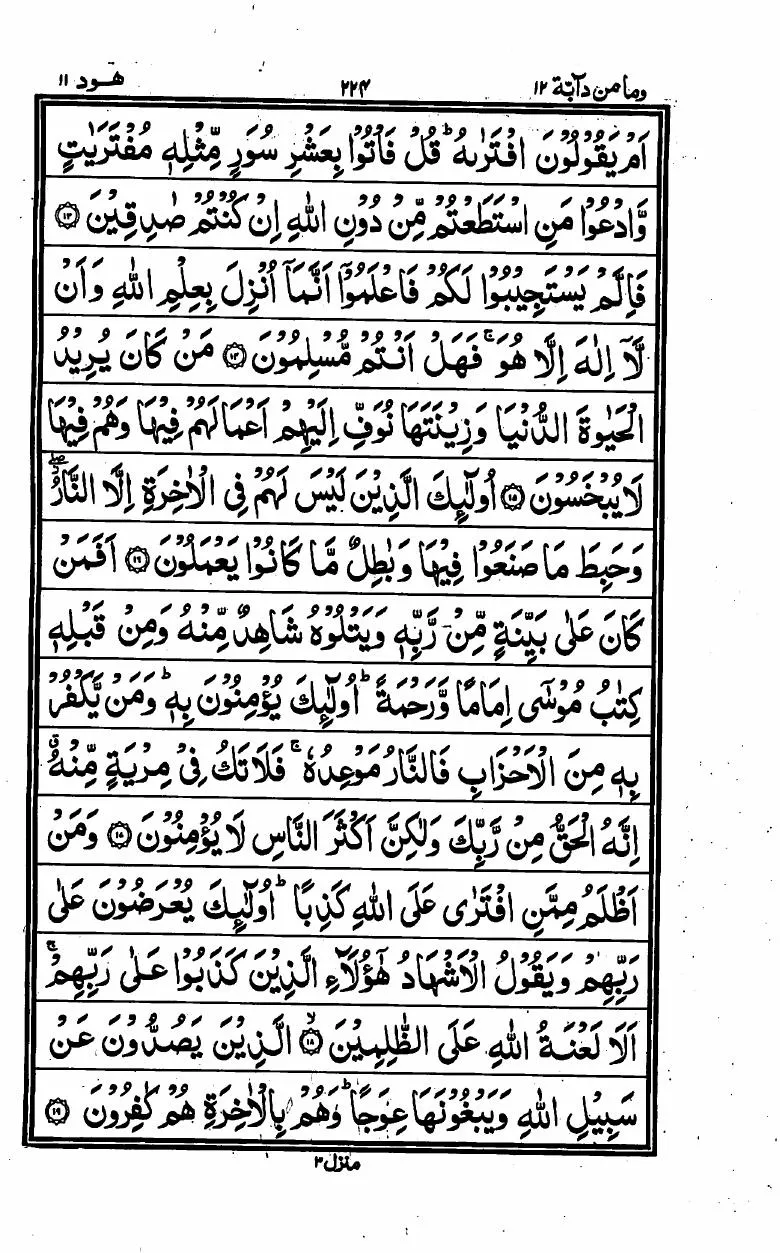 وما من دآبّة ۱۲ ۲۲۴ هود ۱۱
اَمْ يَقُوْلُوْنَ افْتَرٰىهُ ؕ قُلْ فَاْتُوْا بِعَشْرِ سُوَرٍ مِّثْلِهٖ مُفْتَرَيٰتٍ
وَّادْعُوْا مَنِ اسْتَطَعْتُمْ مِّنْ دُوْنِ اللّٰهِ اِنْ كُنْتُمْ صٰدِقِيْنَ ۝۱۳
فَاِلَّمْ يَسْتَجِيْبُوْا لَكُمْ فَاعْلَمُوْۤا اَنَّمَاۤ اُنْزِلَ بِعِلْمِ اللّٰهِ وَاَنْ
لَّاۤ اِلٰهَ اِلَّا هُوَ ۚ فَهَلْ اَنْتُمْ مُّسْلِمُوْنَ ۝۱۴ مَنْ كَانَ يُرِيْدُ
الْحَيٰوةَ الدُّنْيَا وَزِيْنَتَهَا نُوَفِّ اِلَيْهِمْ اَعْمَالَهُمْ فِيْهَا وَهُمْ فِيْهَا
لَا يُبْخَسُوْنَ ۝۱۵ اُولٰٓئِكَ الَّذِيْنَ لَيْسَ لَهُمْ فِى الْاٰخِرَةِ اِلَّا النَّارُ ۖ
وَحَبِطَ مَا صَنَعُوْا فِيْهَا وَبٰطِلٌ مَّا كَانُوْا يَعْمَلُوْنَ ۝۱۶ اَفَمَنْ
كَانَ عَلٰى بَيِّنَةٍ مِّنْ رَّبِّهٖ وَيَتْلُوْهُ شَاهِدٌ مِّنْهُ وَمِنْ قَبْلِهٖ
كِتٰبُ مُوْسٰٓى اِمَامًا وَّرَحْمَةً ؕ اُولٰٓئِكَ يُؤْمِنُوْنَ بِهٖ ؕ وَمَنْ يَّكْفُرْ
بِهٖ مِنَ الْاَحْزَابِ فَالنَّارُ مَوْعِدُهٗ ۚ فَلَا تَكُ فِىْ مِرْيَةٍ مِّنْهُ ۗ
اِنَّهُ الْحَقُّ مِنْ رَّبِّكَ وَلٰكِنَّ اَكْثَرَ النَّاسِ لَا يُؤْمِنُوْنَ ۝۱۷ وَمَنْ
اَظْلَمُ مِمَّنِ افْتَرٰى عَلَى اللّٰهِ كَذِبًا ؕ اُولٰٓئِكَ يُعْرَضُوْنَ عَلٰى
رَبِّهِمْ وَيَقُوْلُ الْاَشْهَادُ هٰٓؤُلَآءِ الَّذِيْنَ كَذَبُوْا عَلٰى رَبِّهِمْ ۚ
اَلَا لَعْنَةُ اللّٰهِ عَلَى الظّٰلِمِيْنَ ۙ۝۱۸ الَّذِيْنَ يَصُدُّوْنَ عَنْ
سَبِيْلِ اللّٰهِ وَيَبْغُوْنَهَا عِوَجًا ؕ وَهُمْ بِالْاٰخِرَةِ هُمْ كٰفِرُوْنَ ۝۱۹
منزل ۳